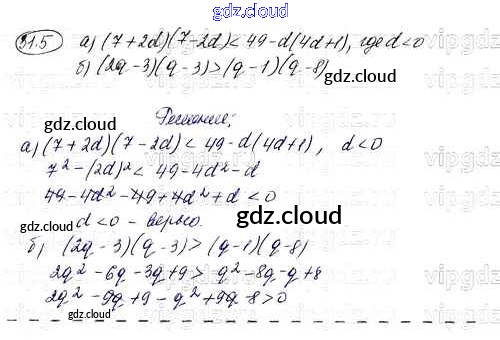 gdz.cloud
31.5 а) (7+2d)(7-2d)<49-d(4d+1), где d<0
б) (2q-3)(q-3)>(q-1)(q-8)
gdz.cloud
Решение:
а) (7+2d)(7-2d)<49-d(4d+1), d<0
gdz.cloud
7²-(2d)²<49-4d²-d
49-4d²-49+4d²+d<0
d<0 - верно.
gdz.cloud
б) (2q-3)(q-3)>(q-1)(q-8)
gdz.cloud
2q²-6q-3q+9>q²-8q-q+8
2q²-9q+9-q²+9q-8>0
gdz.cloud
gdz.cloud